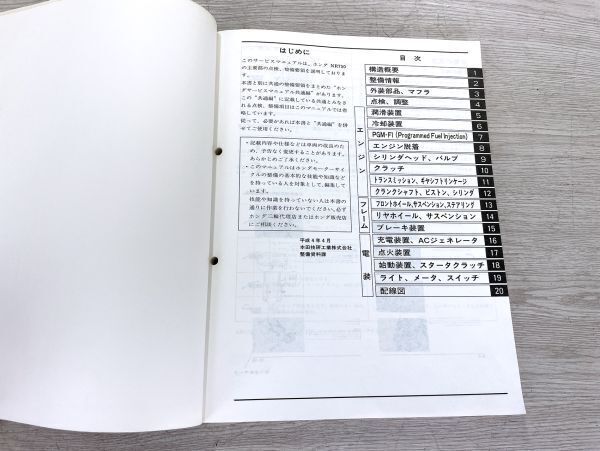 はじめに
このサービスマニュアルは、ホンダ NR750
の主要部の点検、整備要領を説明しておりま
す。
本書と別に共通の整備要領をまとめた"ホン
ダサービスマニュアル共通編"があります。
この"共通編"に記載している共通とみなさ
れる点検、整備項目はこのマニュアルでは省
略しています。
従って、必要があれば本書と"共通編"を併
せてご使用ください。
・記載内容や仕様などは車両の改良のた
め、予告なく変更することがあります。
あらかじめご了承ください。
・このマニュアルはホンダモーターサイ
クルの整備の基本的な技能や知識など
を持っている人を対象として、編集して
います。
技能や知識を持っていない人は本書の
通りに作業を行わないでください。必ず
ホンダ二輪代理店またはホンダ販売店
にご相談ください。
平成4年4月
本田技研工業株式会社
整備資料課
目 次
構造概要 1
整備情報 2
外装部品、マフラ 3
点検、調整 4
エンジン
潤滑装置 5
冷却装置 6
PGM-FI (Programmed Fuel Injection) 7
エンジン脱着 8
シリンダヘッド、バルブ 9
クラッチ 10
トランスミッション、ギヤシフトリンケージ 11
クランクシャフト、ピストン、シリンダ 12
フレーム
フロントホイール、サスペンション、ステアリング 13
リヤホイール、サスペンション 14
ブレーキ装置 15
電装
充電装置、ACジェネレータ 16
点火装置 17
始動装置、スタータクラッチ 18
ライト、メータ、スイッチ 19
配線図 20